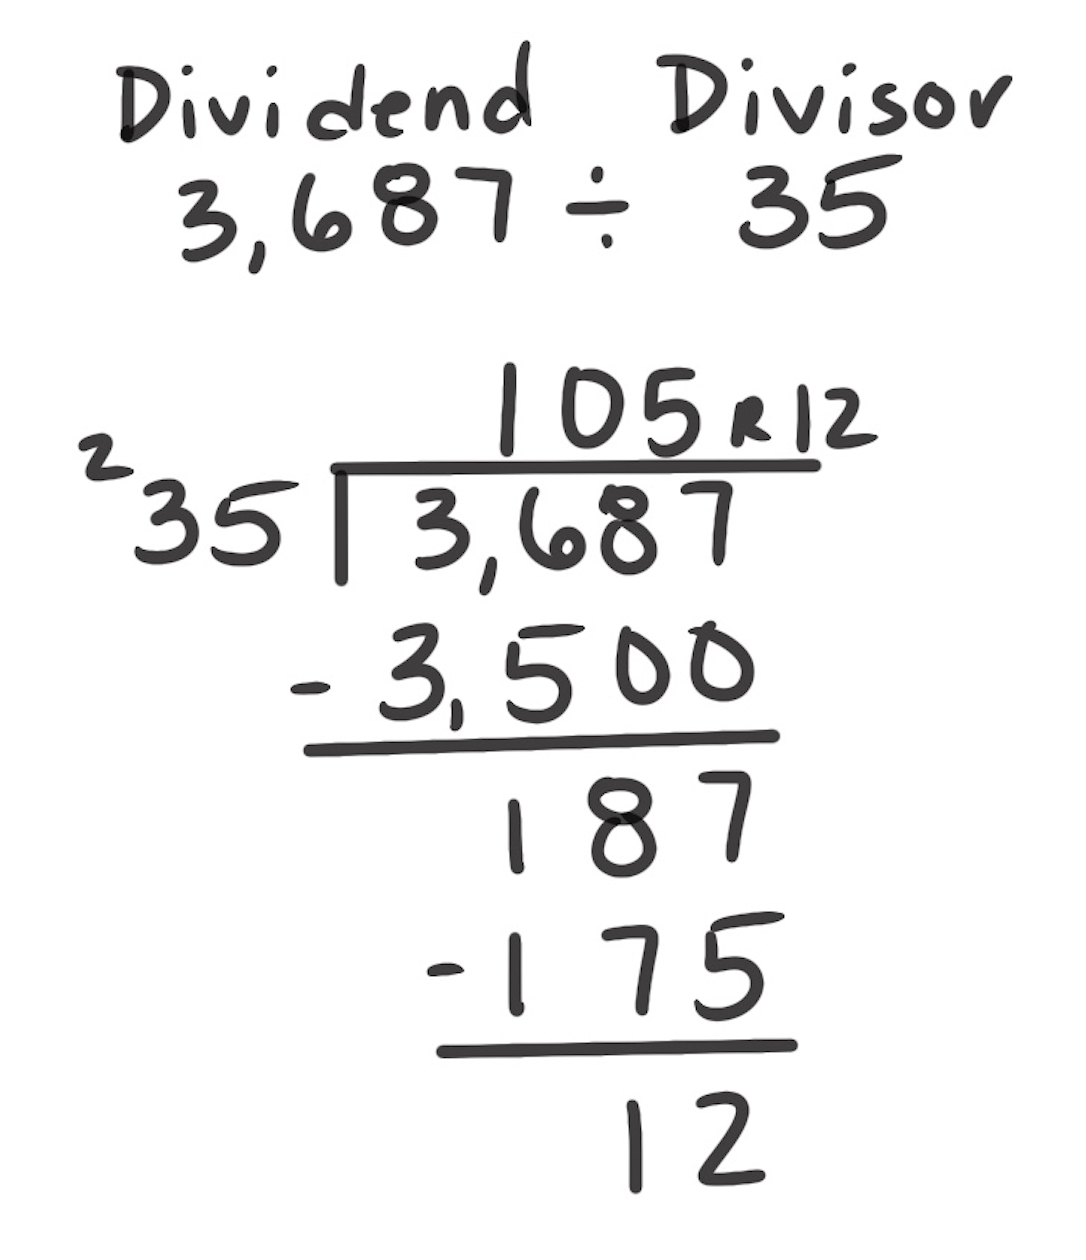 Dividend Divisor
3,687 ÷ 35
105 R12
2
35 3,687
- 3,500
187
-175
12